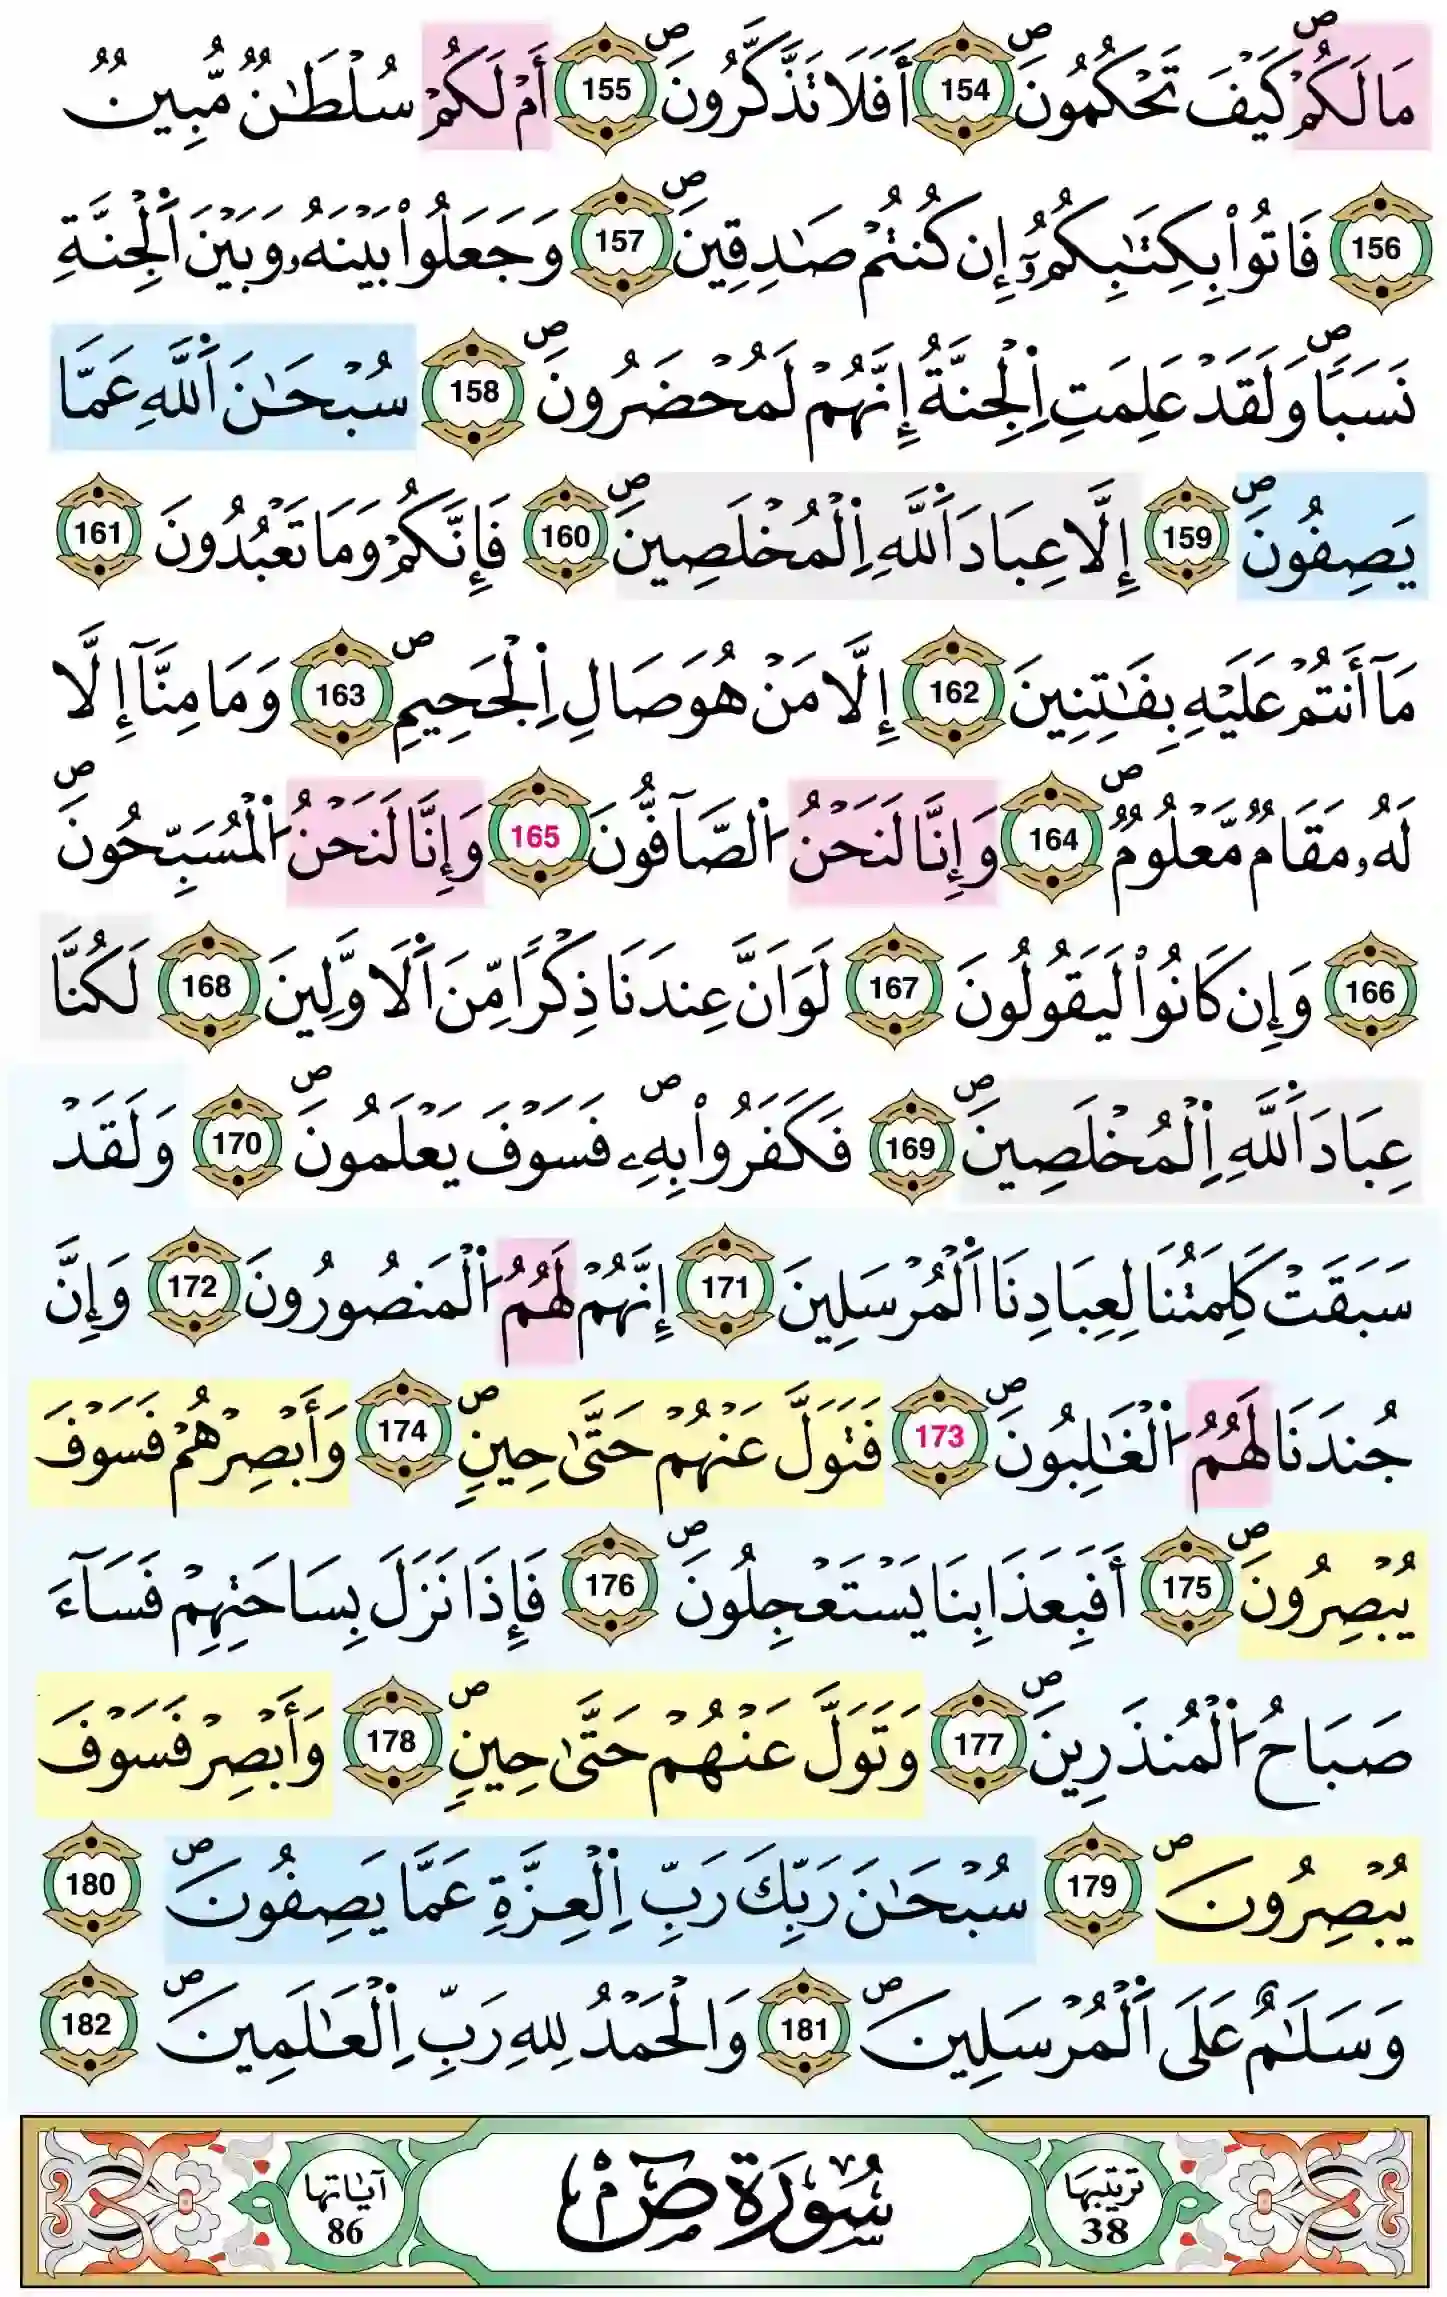 مَا لَكُمْ كَيْفَ تَحْكُمُونَۖ 154 أَفَلَا تَذَّكَّرُونَۖ 155 أَمْ لَكُمْ سُلْطَٰنٞ مُّبِينٞ
156 فَاتُواْ بِكِتَٰبِكُمُۥٓ إِن كُنتُمْ صَٰدِقِينَۖ 157 وَجَعَلُواْ بَيْنَهُۥ وَبَيْنَ اَ۬لْجِنَّةِ
نَسَباٗۖ وَلَقَدْ عَلِمَتِ اِ۬لْجِنَّةُ إِنَّهُمْ لَمُحْضَرُونَۖ 158 سُبْحَٰنَ اَ۬للَّهِ عَمَّا
يَصِفُونَۖ 159 إِلَّا عِبَادَ اَ۬للَّهِ اِ۬لْمُخْلَصِينَۖ 160 فَإِنَّكُمْ وَمَا تَعْبُدُونَ 161
مَآ أَنتُمْ عَلَيْهِ بِفَٰتِنِينَ 162 إِلَّا مَنْ هُوَ صَالِ اِ۬لْجَحِيمِۖ 163 وَمَا مِنَّآ إِلَّا
لَهُۥ مَقَامٞ مَّعْلُومٞۖ 164 وَإِنَّا لَنَحْنُ اُ۬لصَّآفُّونَ 165 وَإِنَّا لَنَحْنُ اُ۬لْمُسَبِّحُونَۖ
166 وَإِن كَانُواْ لَيَقُولُونَ 167 لَوَ اَنَّ عِندَنَا ذِكْراٗ مِّنَ اَ۬لَاوَّلِينَ 168 لَكُنَّا
عِبَادَ اَ۬للَّهِ اِ۬لْمُخْلَصِينَۖ 169 فَكَفَرُواْ بِهِۦۖ فَسَوْفَ يَعْلَمُونَۖ 170 وَلَقَدْ
سَبَقَتْ كَلِمَتُنَا لِعِبَادِنَا اَ۬لْمُرْسَلِينَ 171 إِنَّهُمْ لَهُمُ اُ۬لْمَنصُورُونَ 172 وَإِنَّ
جُندَنَا لَهُمُ اُ۬لْغَٰلِبُونَۖ 173 فَتَوَلَّ عَنْهُمْ حَتَّىٰ حِينٖۖ 174 وَأَبْصِرْهُمْ فَسَوْفَ
يُبْصِرُونَۖ 175 أَفَبِعَذَابِنَا يَسْتَعْجِلُونَۖ 176 فَإِذَا نَزَلَ بِسَاحَتِهِمْ فَسَآءَ
صَبَاحُ اُ۬لْمُنذَرِينَۖ 177 وَتَوَلَّ عَنْهُمْ حَتَّىٰ حِينٖۖ 178 وَأَبْصِرْ فَسَوْفَ
يُبْصِرُونَۖ 179 سُبْحَٰنَ رَبِّكَ رَبِّ اِ۬لْعِزَّةِ عَمَّا يَصِفُونَۖ 180
وَسَلَٰمٌ عَلَى اَ۬لْمُرْسَلِينَۖ 181 وَالْحَمْدُ لِلهِ رَبِّ اِ۬لْعَٰلَمِينَۖ 182
ترتيبها 38
سُورَةُ صٓ
آياتها 86